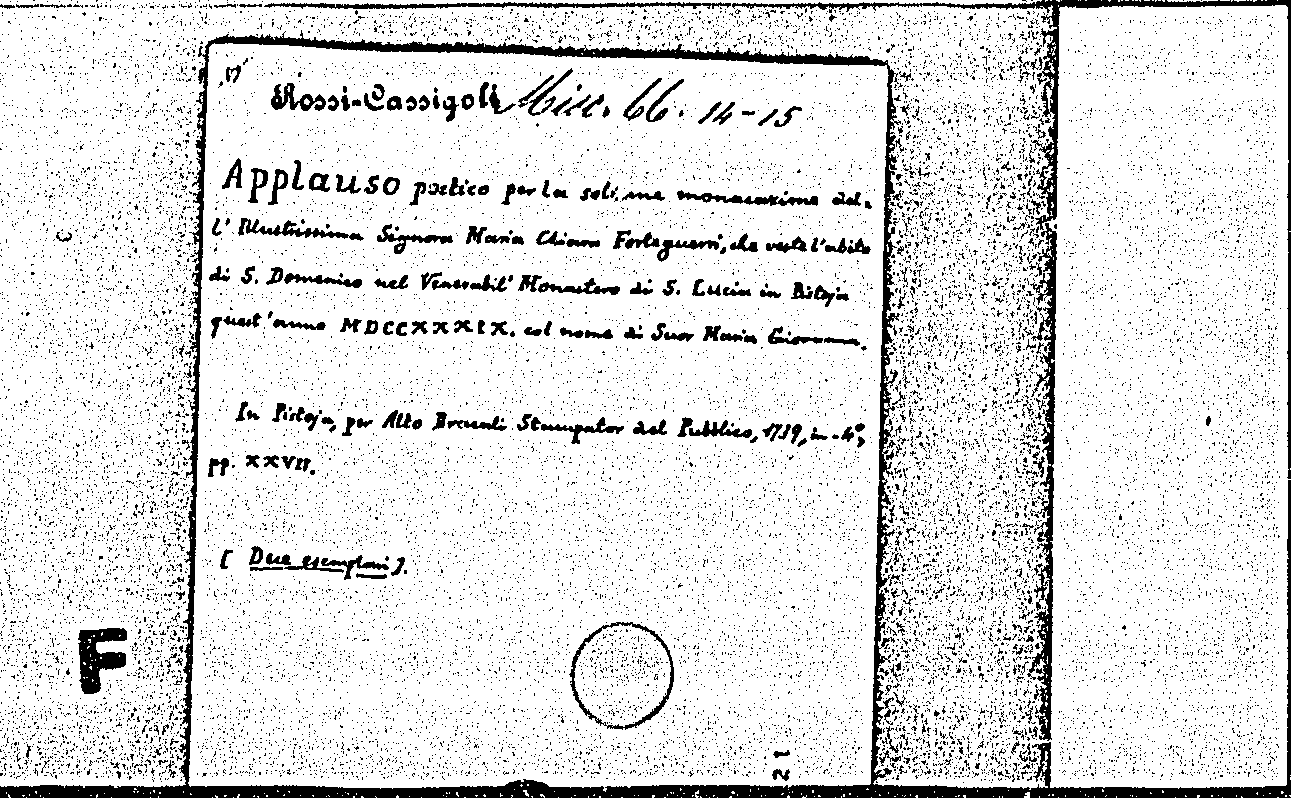 17
Rossi-Cassigoli Misc. 66. 14-15
Applauso poetico per la sol. me monacazione del-
l' Illustrissima Signora Maria Chiara Forteguerri, che veste l'abito
di S. Domenico nel Venerabil' Monastero di S. Lucia in Pistoja
quest'anno MDCCXXXIX. col nome di Suor Maria Giovanna.
In Pistoja, per Atto Bracali Stampator del Pubblico, 1739, in-4°,
pp. XXVII.
[ Due esemplari ].
F
21